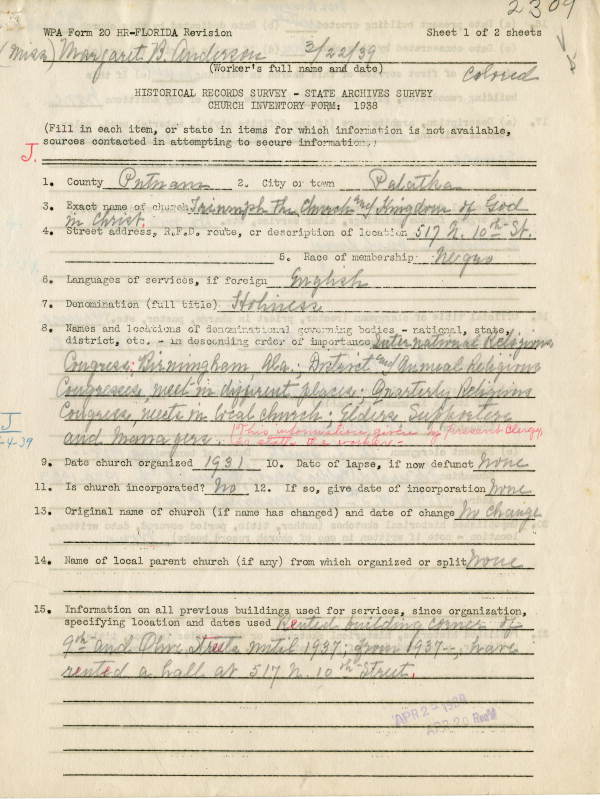 2309
WPA Form 20 HR-FLORIDA Revision Sheet 1 of 2 sheets
(Miss) Margaret B. Anderson 3/22/39
(Worker's full name and date)
Colored
HISTORICAL RECORDS SURVEY - STATE ARCHIVES SURVEY
CHURCH INVENTORY FORM: 1938
(Fill in each item, or state in items for which information is not available,
sources contacted in attempting to secure information.)
J.
1. County Putnam 2. City or town Palatka
3. Exact name of church Triumph The Church and Kingdom of God
in Christ.
4. Street address, R.F.D. route, or description of location 517 N. 10th St.
5. Race of membership Negro
6. Languages of services, if foreign English
7. Denomination (full title) Holiness
8. Names and locations of denominational governing bodies - national, state,
district, etc. - in descending order of importance International Religious
Congress; Birmingham, Ala.; District and Annual Religious
Congresses, meet in different places; Quarterly Religious
Congress, meets in local church; Elders Supporters
J
-4-39
and Managers. This information given by present Clergy,
9. Date church organized 1931 10. Date of lapse, if now defunct None
11. Is church incorporated? No 12. If so, give date of incorporation None
13. Original name of church (if name has changed) and date of change No change
14. Name of local parent church (if any) from which organized or split None
15. Information on all previous buildings used for services, since organization,
specifying location and dates used Rented building corner of
9th and Olive Streets until 1937; from 1937--, have
rented a hall at 517 N. 10th Street.
APR 2 - 1939
APR 20 Rec'd